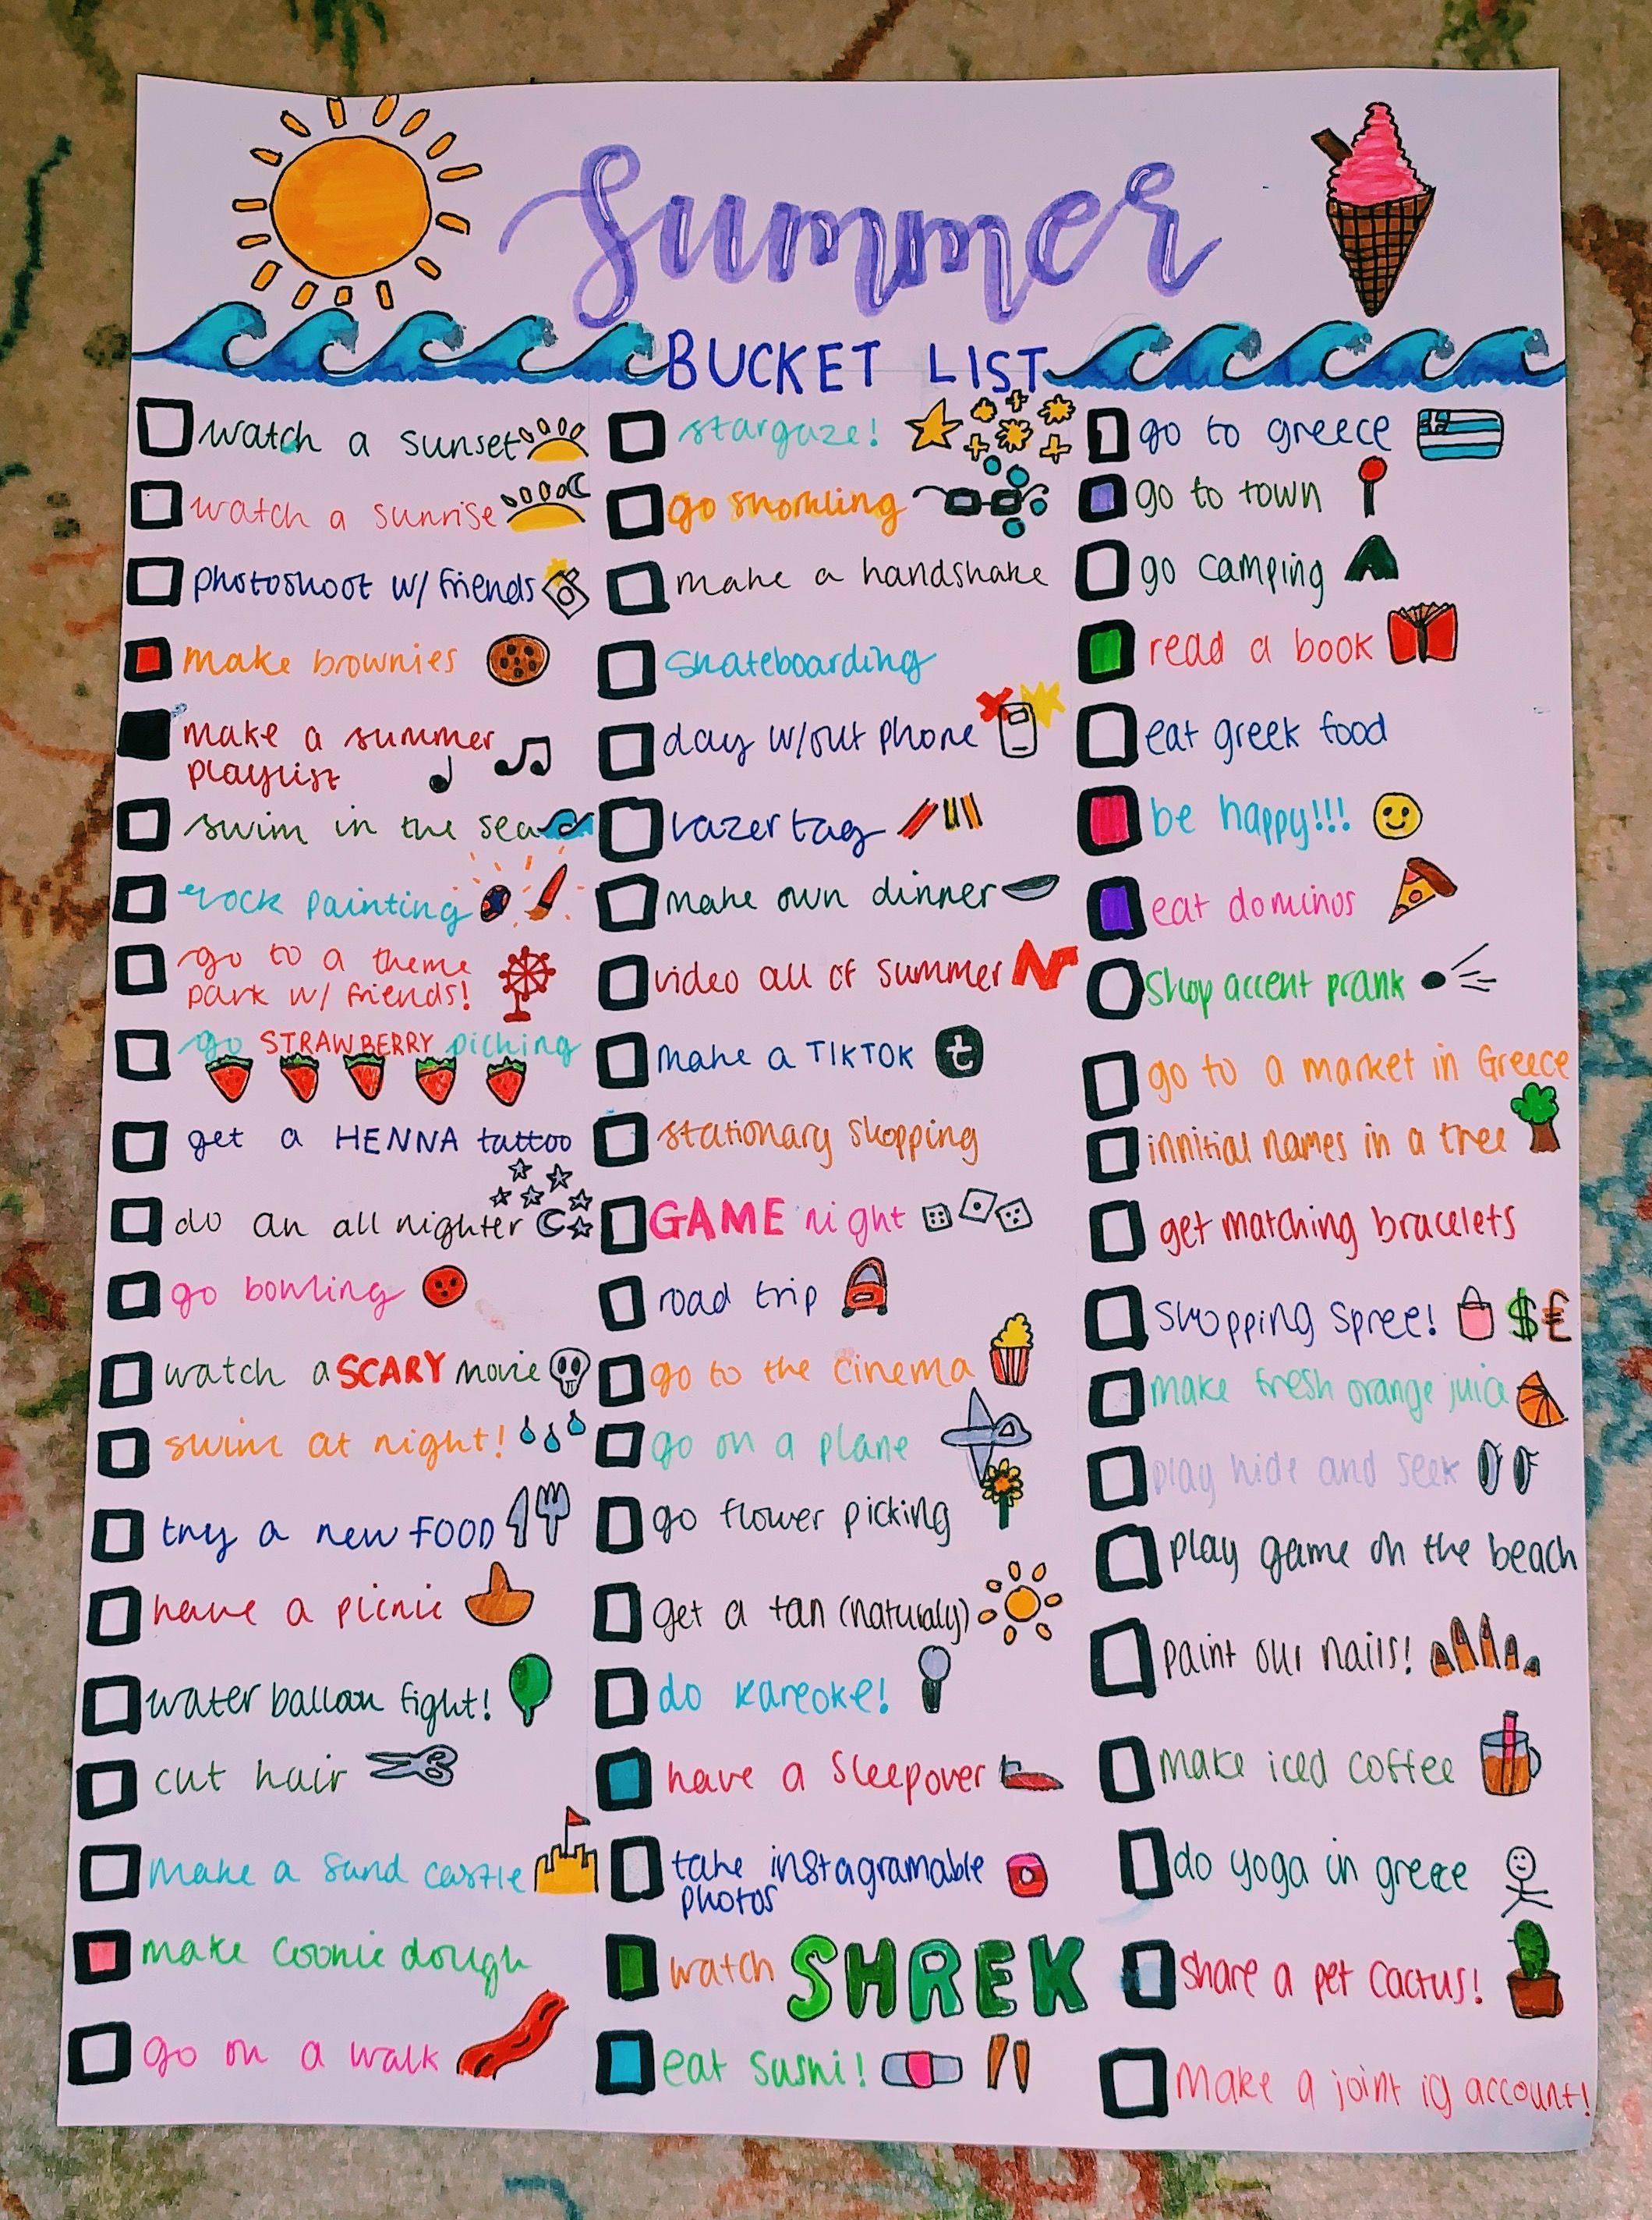 Summer
BUCKET LIST
watch a sunset
watch a sunrise
photoshoot w/ friends
make brownies
make a summer
playlist
swim in the sea
rock painting
go to a theme
park w/ friends!
go STRAWBERRY picking
get a HENNA tattoo
do an all nighter
go bowling
watch a SCARY movie
swim at night!
try a new FOOD
have a picnic
water balloon fight!
cut hair
make a sand castle
make cookie dough
go on a walk
stargaze!
go snorkling
make a handshake
skateboarding
day w/out phone
lazer tag
make own dinner
video all of summer
make a TIKTOK
t
stationary shopping
GAME night
road trip
go to the cinema
go on a plane
go flower picking
get a tan (naturaly)
do kareoke!
have a sleepover
take instagramable
photos
watch SHREK
eat sushi!
go to greece
go to town
go camping
read a book
eat greek food
be happy!!!
eat dominos
shop accent prank
go to a market in Greece
innitial names in a tree
get matching bracelets
shopping spree! $£
make fresh orange juice
play hide and seek
play game on the beach
paint our nails!
make iced coffee
do yoga in greece
share a pet cactus!
make a joint ig account!